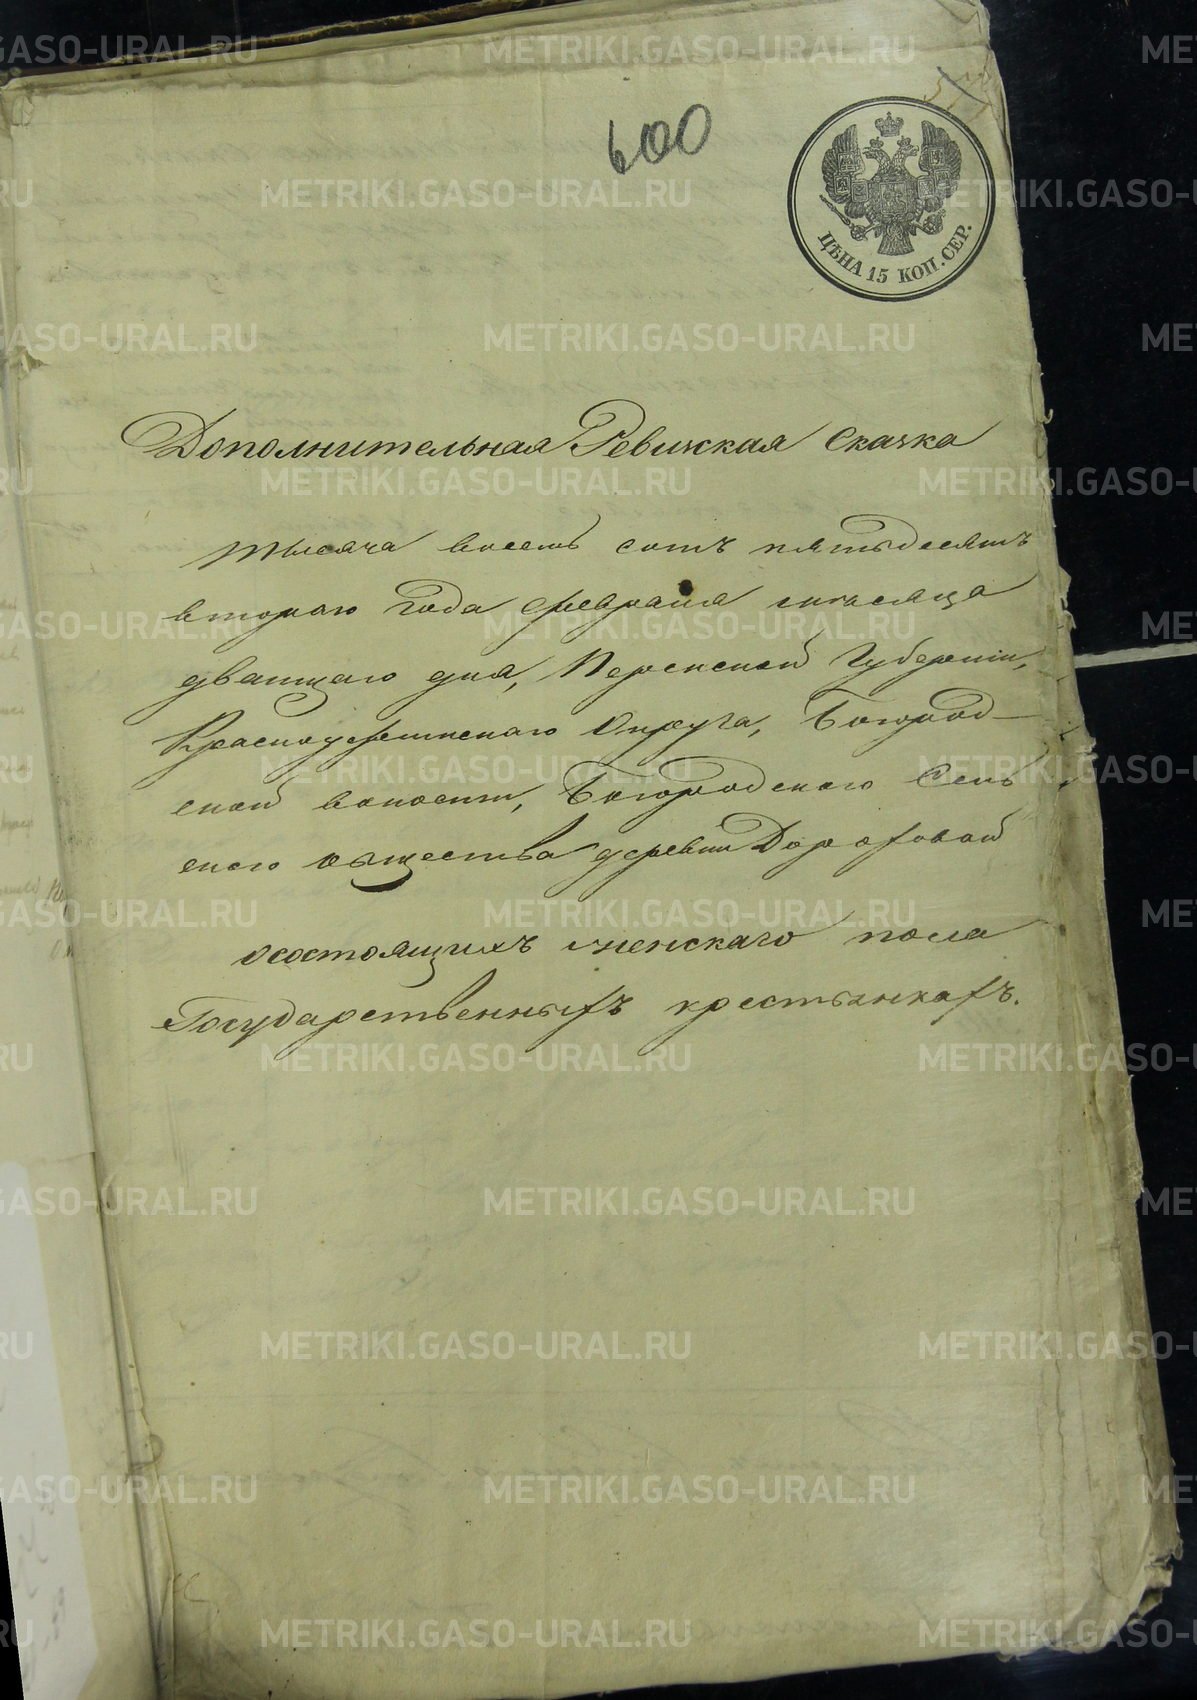 600
ЦѢНА 15 КОП. СЕР.
Дополнительная Ревижская Сказка
тысяча восемь сотъ пятьдесятъ
втораго года февраля месяца
дватцаго дня, Пермской Губерніи,
Красноуфимскаго Округа, Богород-
ской волости, Богородскаго Сель
скаго общества деревни Дорофовой
о состоящихъ женскаго пола
Государственныхъ крестьянкахъ.
METRIKI.GASO-URAL.RU